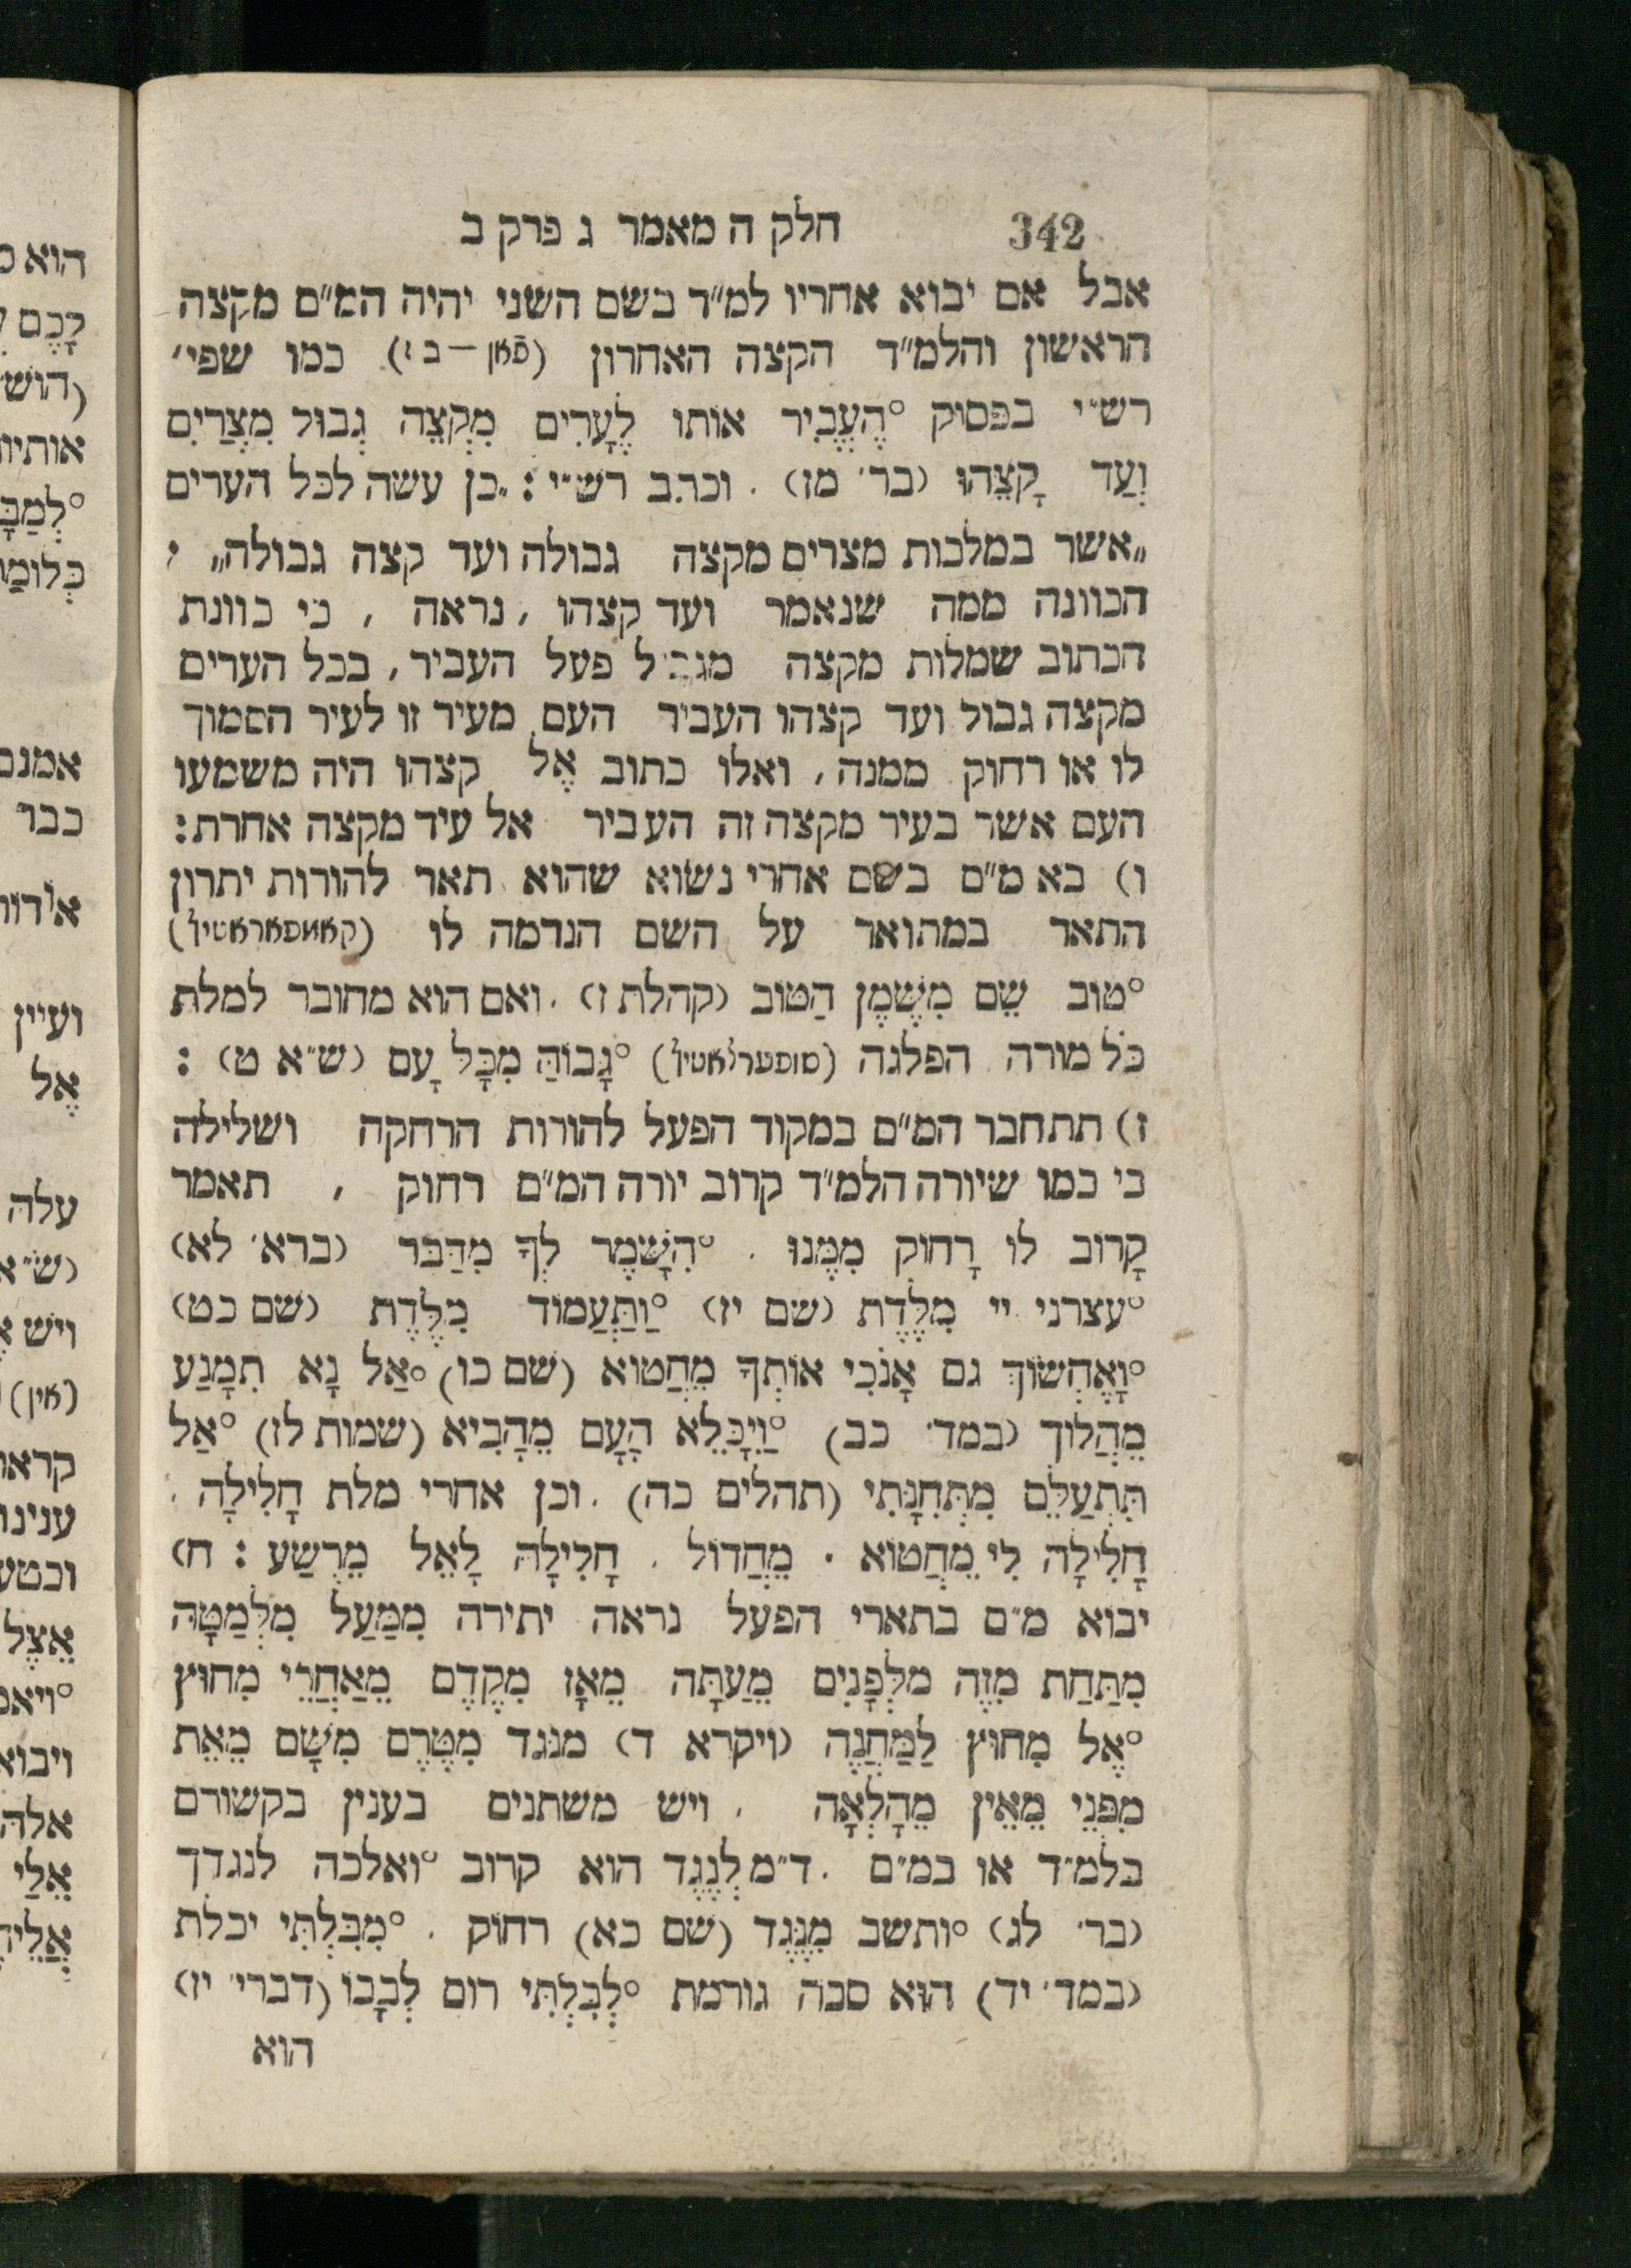 342 חלק ה מאמר ג פרק ב
אבל אם יבוא אחריו למ״ד בשם השני יהיה המ״ם מקצה
הראשון והלמ״ד הקצה האחרון (פֿאן — ביז) כמו שפי׳
רש״י בפסוק °הֶעֱבִיר אותו לֶעָרִים מִקְצֵה גְבוּל מִצְרַיִם
וְעַד קָצֵהוּ (בר׳ מז) . וכתב רש״י : „כן עשה לכל הערים
„אשר במלכות מצרים מקצה גבולה ועד קצה גבולה„ ,
הכוונה ממה שנאמר ועד קצהו , נראה , כי כוונת
הכתוב שמלות מקצה פעל העביר , בכל הערים
מקצה גבול ועד קצהו העביר העם מעיר זו לעיר הסמוך
לו או רחוק ממנה , ואלו כתוב אֶל קצהו היה משמעו
העם אשר בעיר מקצה זה העביר אל עיד מקצה אחרת :
ו) בא מ״ם בשם אחרי נשוא שהוא תאר להורות יתרון
התאר במתואר על השם הנדמה לו (קאמפאראטיוֿ)
°טוב שֵׁם מִשֶּׁמֶן הַטּוב (קהלת ז) . ואם הוא מחובר למלת
כֹּל מורה הפלגה (סופערלאטיוֿ) °גָבוֹהַּ מִכָּל עָם (ש״א ט) :
ז) תתחבר המ״ם במקור הפעל להורות הרחקה ושלילה
כי כמו שיורה הלמ״ד קרוב יורה המ״ם רחוק , תאמר
קָרוב לו רָחוק מִמֶּנוּ . °הִשָּׁמֶר לְךָ מִדַּבֵּר (ברא׳ לא)
°עצרני יי מִלֶּדֶת (שם יז) °וַתַּעֲמוד מִלֶּדֶת (שם כט)
°וָאֶחְשׂוֹךְ גם אָנֹכִי אוֹתְךָ מֵחֲטוא (שם כו) °אַל נָא תִמָּנַע
מֵהֲלוך (במד׳ כב) °וַיִּכָּלֵא הָעָם מֵהָבִיא (שמות לז) °אַל
תִּתְעַלֵּם מִתְּחִנָּתִי (תהלים כה) . וכן אחרי מלת חָלִילָה .
חָלִילָה לִי מֵחֲטוֹא . מֵחֲדוֹל . חָלִילָה לָאֵל מֵרֶשַׁע : ח)
יבוא מ״ם בתארי הפעל נראה יתירה מִמַּעַל מִלְּמַטָּה
מִתַּחַת מִזֶּה מִלְּפָנִים מֵעַתָּה מֵאָז מִקֶּדֶם מֵאַחֲרֵי מִחוּץ
°אֶל מִחוּץ לַמַּחֲנֶה (ויקרא ד) מנגד מִטֶּרֶם מִשָּׁם מֵאֵת
מִפְּנֵי מֵאֵין מֵהָלְאָה . ויש משתנים בענין בקשורם
בלמ״ד או במ״ם . ד״מ לְנֶגֶד הוא קרוב °ואלכה לנגדך
(בר׳ לג) °ותשב מִנֶּגֶד (שם כא) רחוק . °מִבִּלְתִּי יכלת
(במד׳ יד) הוא סבה גורמת °לְבִלְתִּי רום לְבָבוֹ (דברי׳ יז)
הוא